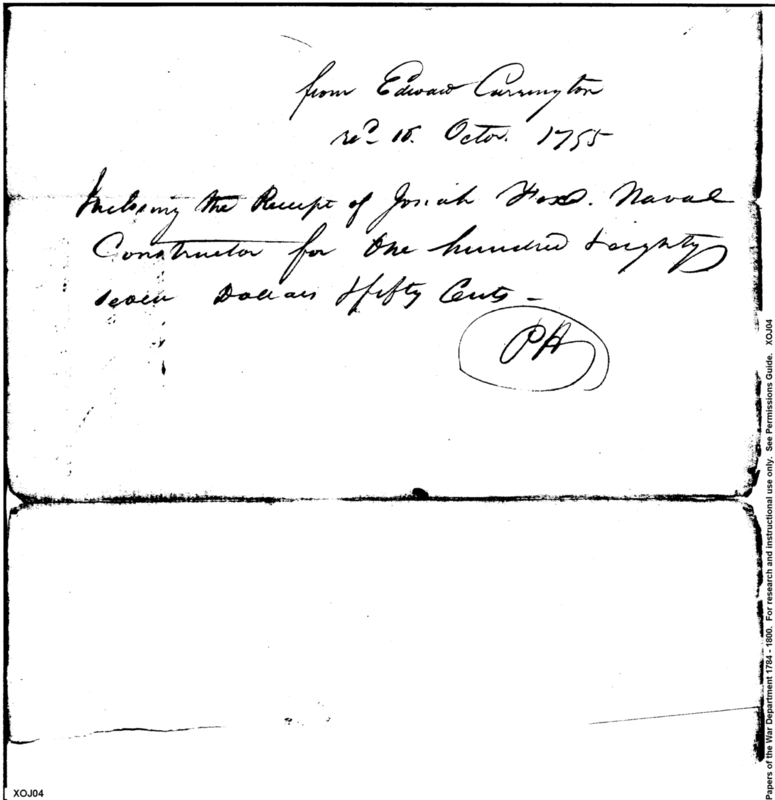 from Edward Carrington
recd 15. Octor. 1795
Inclosing the Receipt of Josiah Fox. Naval
Constructor for One hundred & eighty
seven Dollars & fifty Cents –
PH
XOJ04
Papers of the War Department 1784 - 1800. For research and instructional use only. See Permissions Guide. XOJ04